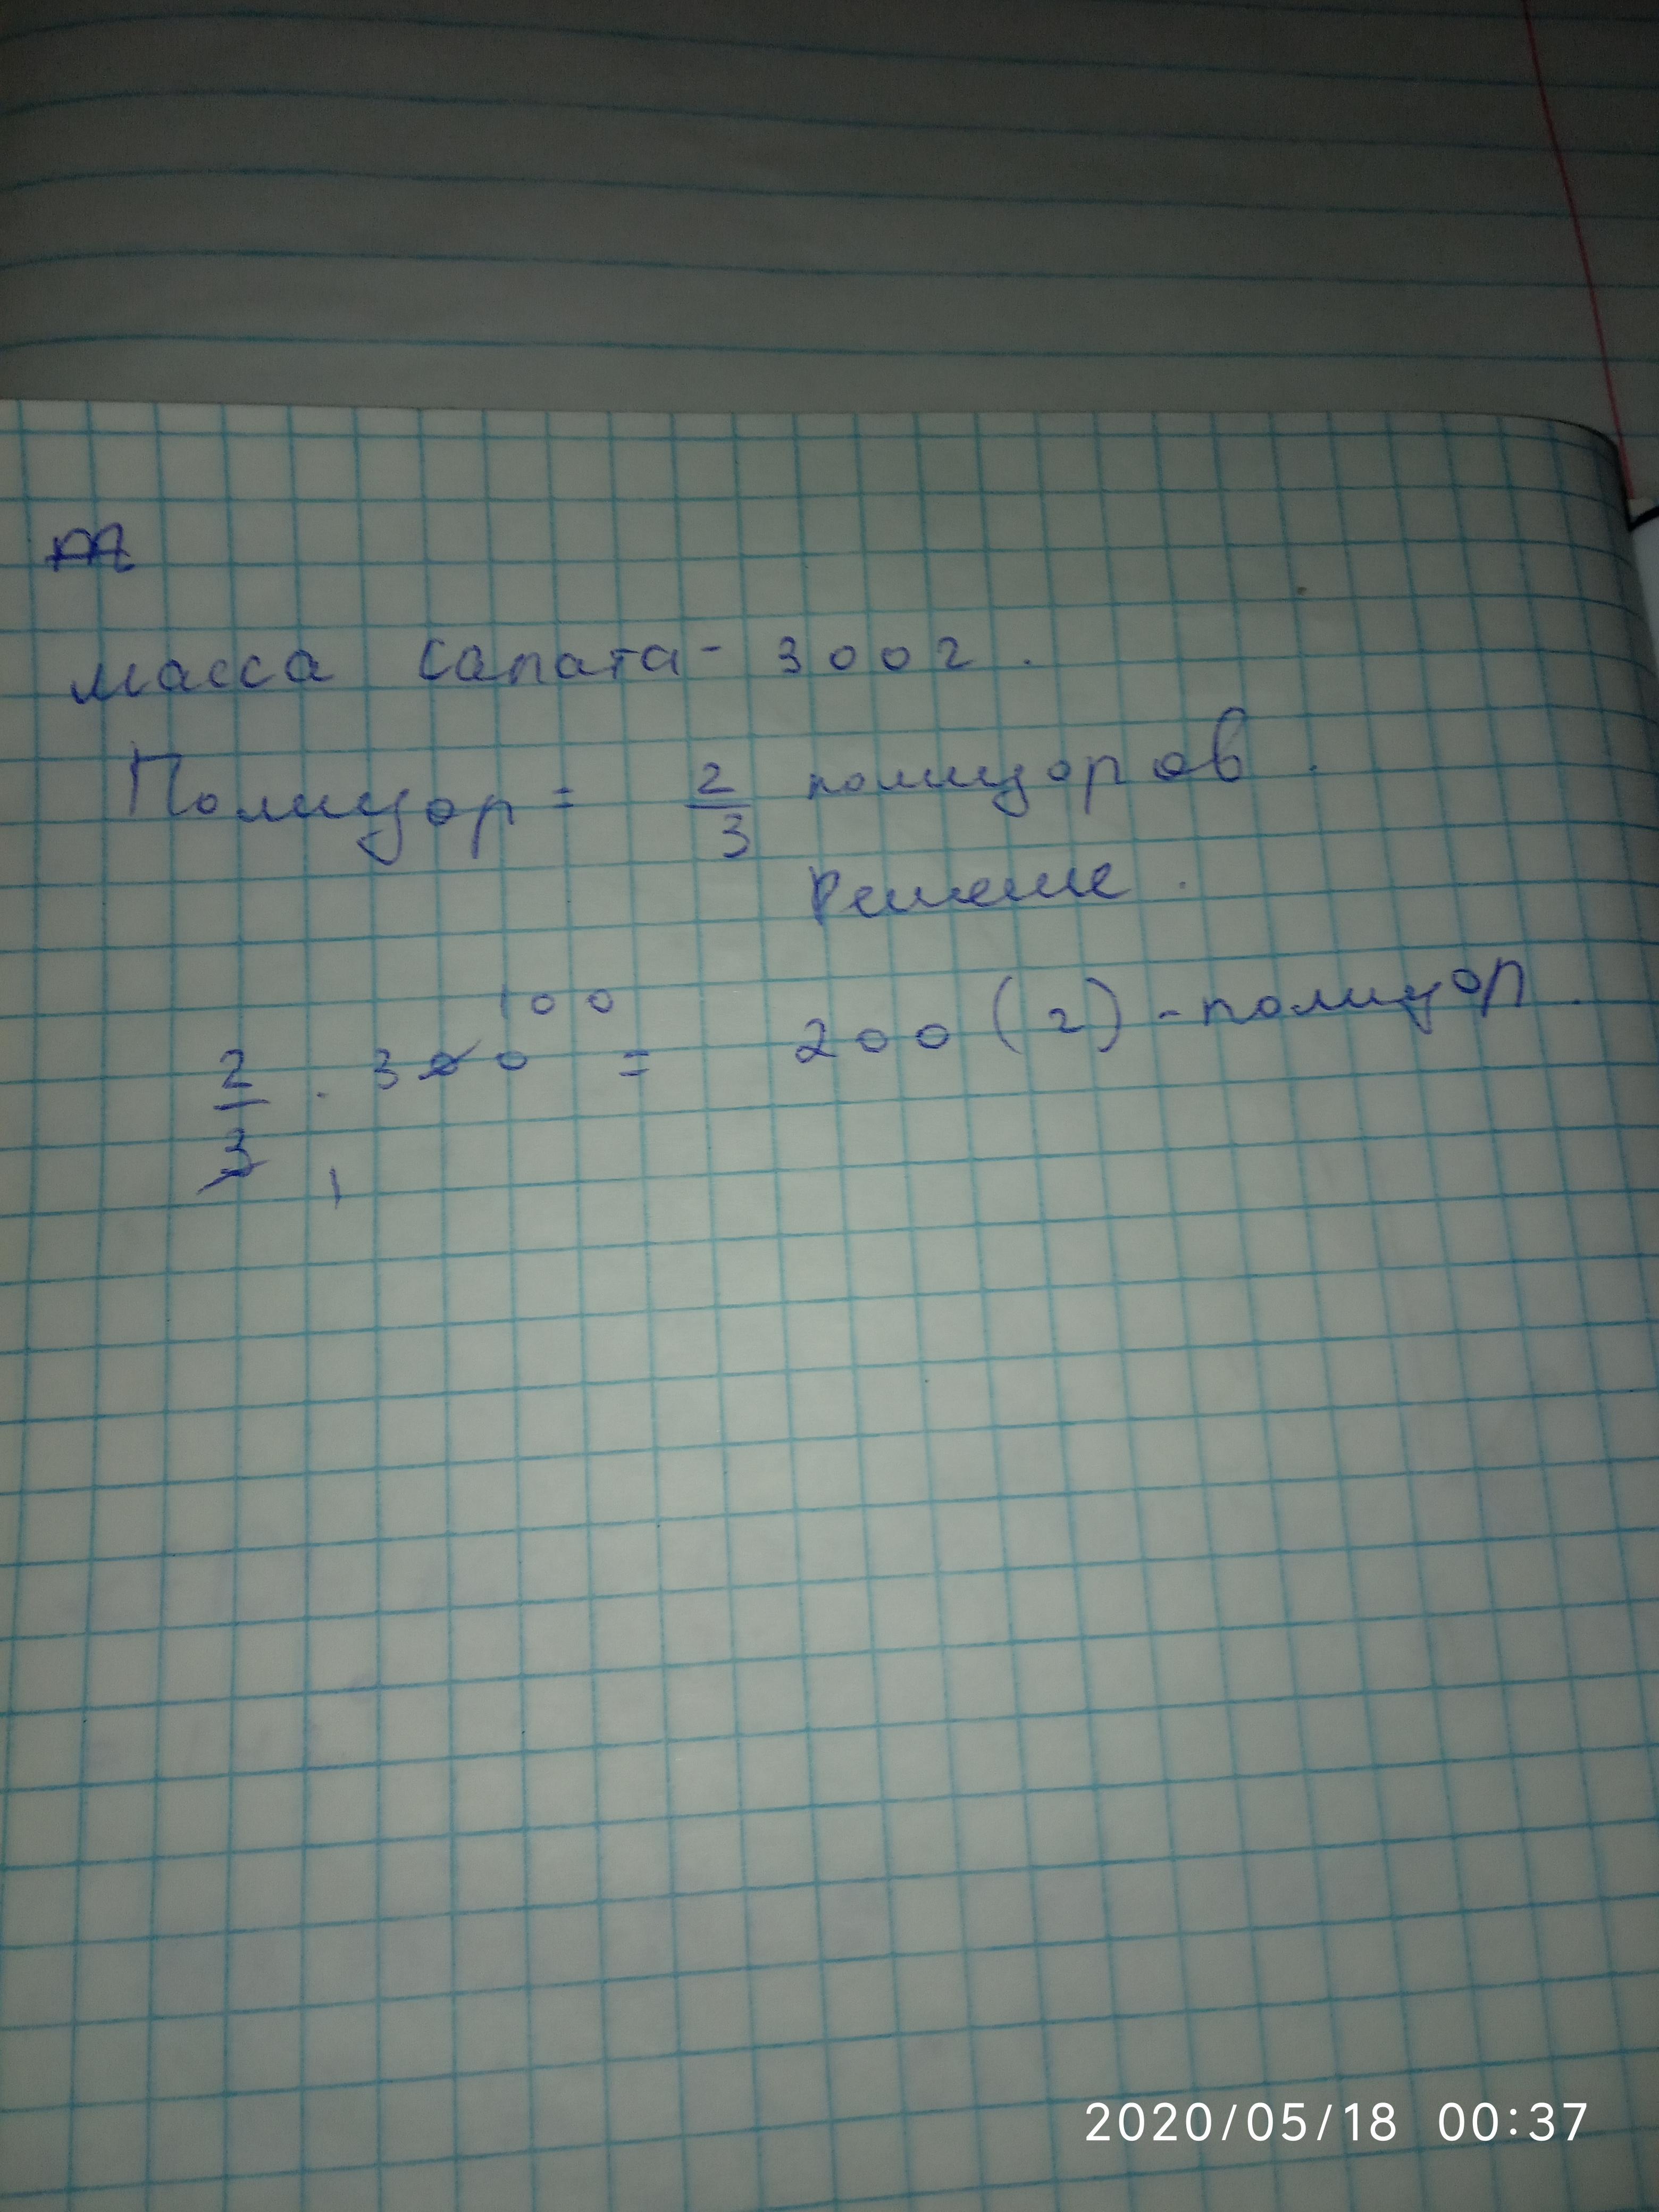 масса салата - 300г.
Помидор = 2/3 помидоров.
Решение.
2/3 · 300 = 200 (г) - помидор.
100
1
2020/05/18 00:37